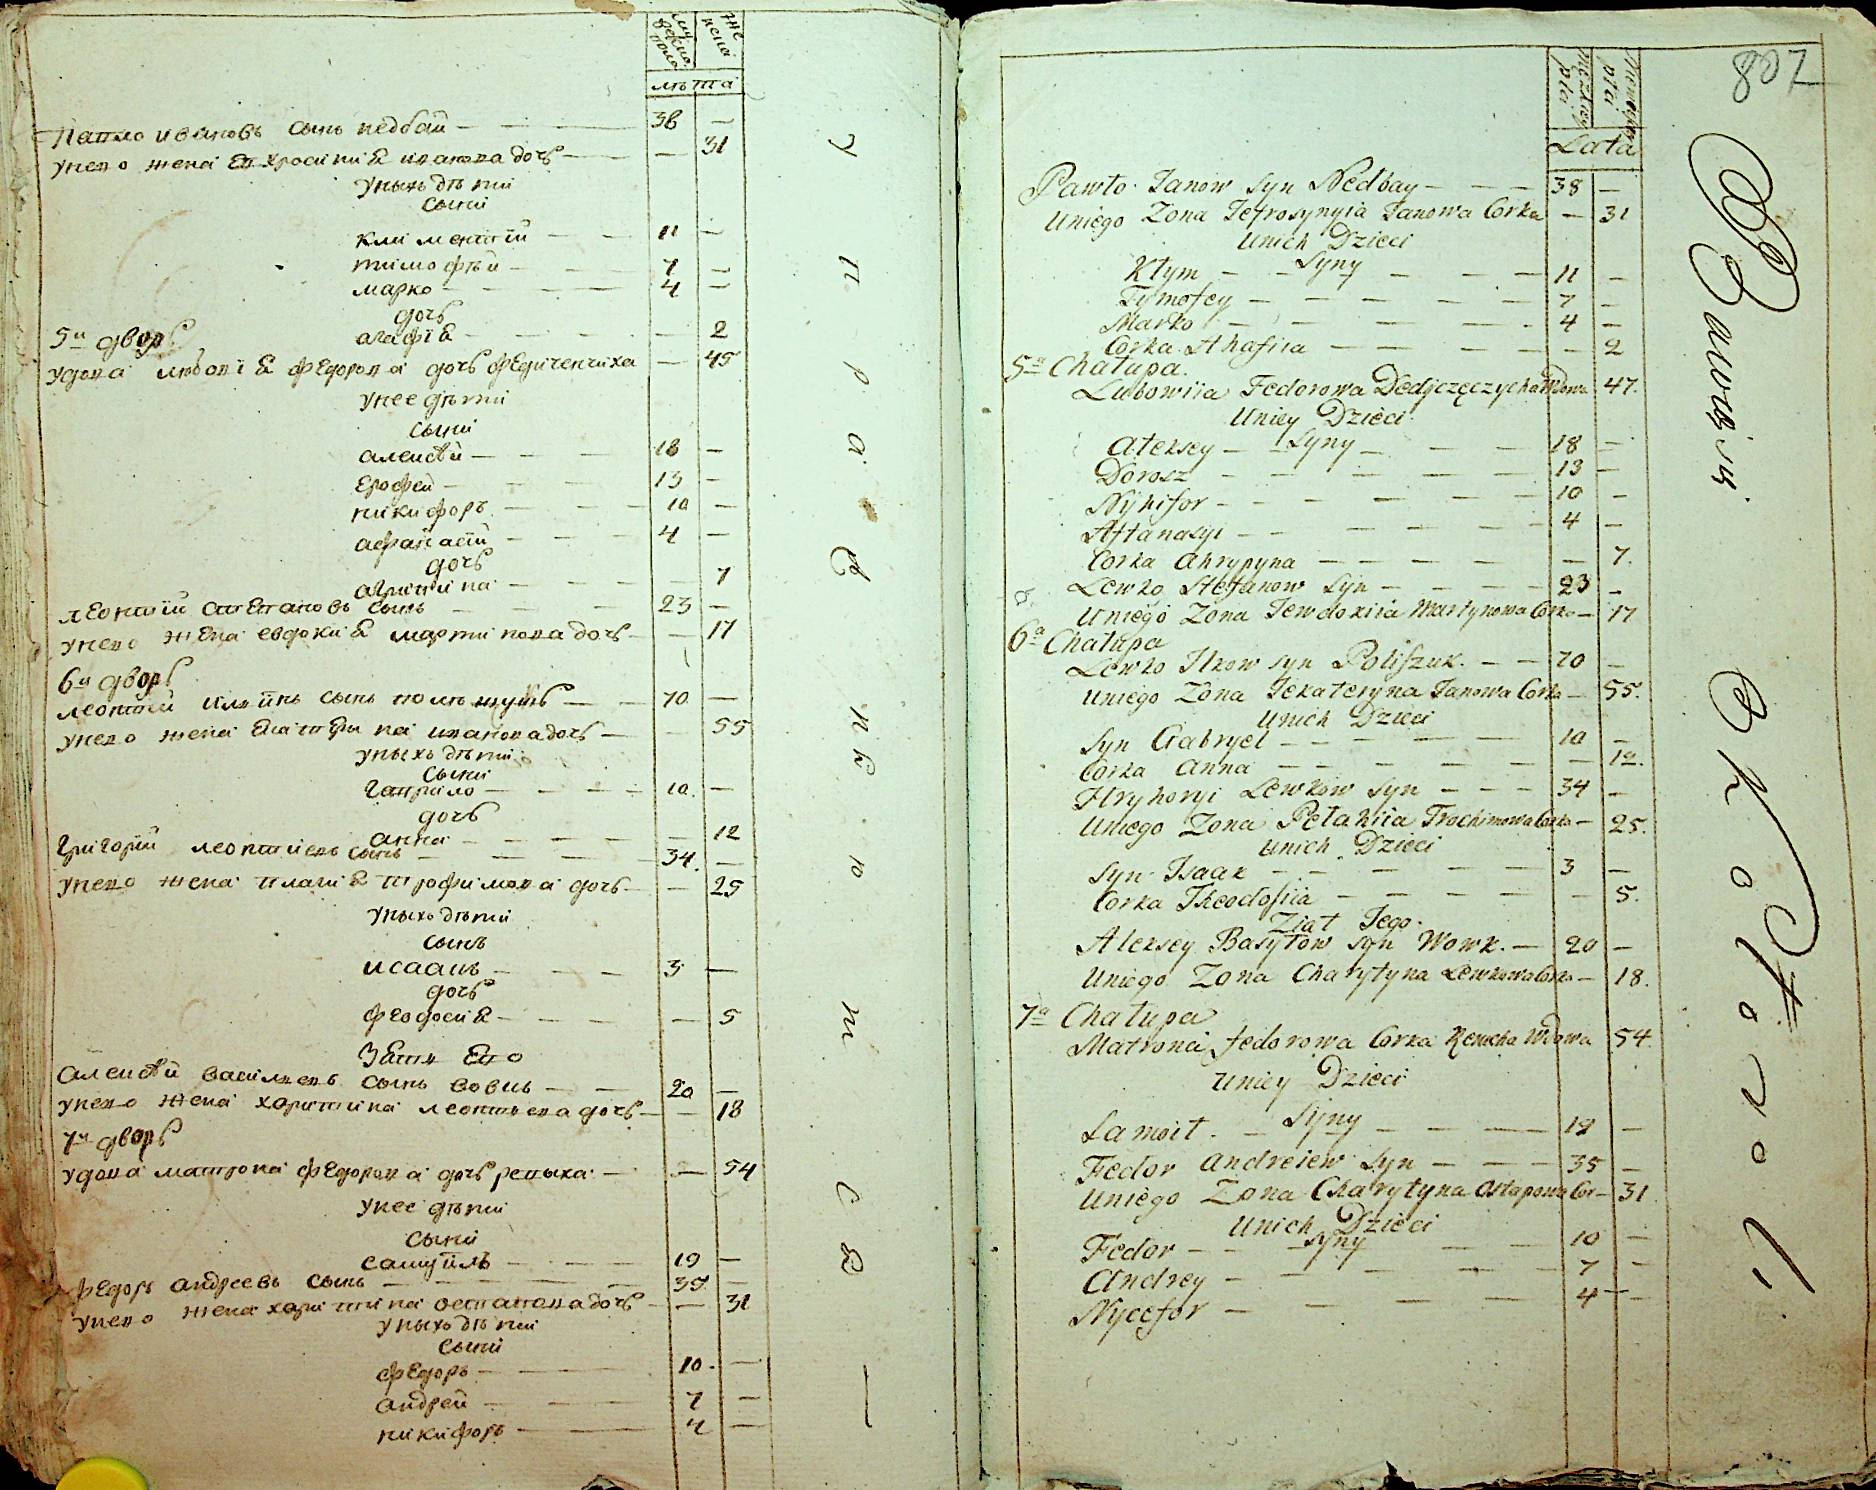 мужеска пола
жена
лѣта
Павло ивановъ сынъ недбай — 38 —
унего жена Евхросиниѣ иванова дочь — — 31
унихъ дѣти
сыни
климентїй — 11 —
тимофѣй — 7 —
марко — 4 —
дочь
агафїѣ — — 2
5й дворъ
удова любовїѣ федорова дочь — 45
унее дѣти
сыни
алексѣй — 18 —
ерофей — 13 —
никифоръ — 10 —
афанасїй — 4 —
дочь
агрипина — — 7
леонтїй степановъ сынъ — 23 —
унего жена евдокиѣ мартинова дочь — — 17
6й дворъ
леонтїй сынъ — 70 —
унего жена Екатерина иванова дочь — — 55
унихъ дѣти
сыни
гаврило — 10 —
дочь
анна — — 12
григорїй леонтїевъ сынъ — 34 —
унего жена пелагиѣ трофимова дочь — — 25
унихъ дѣти
сынъ
исаакъ — 3 —
дочь
феодосиѣ — — 5
Зять Его
алексѣй василиевъ сынъ вовкъ — 20 —
унего жена харитина леонтиева дочь — — 18
7й дворъ
удова матрона федорова дочь репыха — — 54
унее дѣти
сыни
самуйлъ — 19 —
федоръ андреевъ сынъ — 35 —
унего жена харитина остапова дочь — — 31
унихъ дѣти
сыни
федоръ — 10 —
андрей — 7 —
никифоръ — 4 —
807
męzkiey płci
płci
Lata
Pawło Janow Syn Nedbay — 38 —
Uniego Zona Jefrosynyia Janowa Corka — 31
Unich Dzieci
Syny
Kłym — 11 —
Tymofey — 7 —
Marko — 4 —
Corka Ahafiia — — 2
5a Chałupa.
Lubowiia Fedorowa Wdowa 47.
Uniey Dzieci
Syny
Alexsey — 18 —
Dorosz — 13 —
Nyhifor — 10 —
Aftanasyi — 4 —
Corka Ahrypyna — — 7.
Lewko Stefanow Syn — 23 —
Uniego Zona Jewdokiia Martynowa Corka — 17
6a Chałupa
Lewko Ilkow Syn Poliszuk. — 70 —
Uniego Zona Jekateryna Janowa Corka — 55.
Unich Dzieci
Syn Gabryel — 10 —
Corka Anna — — 12.
Hryhoryi Lewkow Syn — 34 —
Uniego Zona Pełahiia Trochimowa Corka — 25.
Unich Dzieci
Syn Isaak — 3 —
Corka Theodosiia — — 5.
Ziat Jego.
Alexsey Basylow Syn Wowk. — 20 —
Uniego Zona Charytyna Lewkowa Corka — 18.
7a Chałupa
Matrona Fedorowa Corka Wdowa 54
Uniey Dzieci
Syny
Samoił. — 19 —
Fedor Andreiew Syn — 35 —
Uniego Zona Charytyna Ostapowa Cor — 31
Unich Dzieci
Syny
Fedor — 10 —
Andrey — 7 —
Nycefor — 4 —